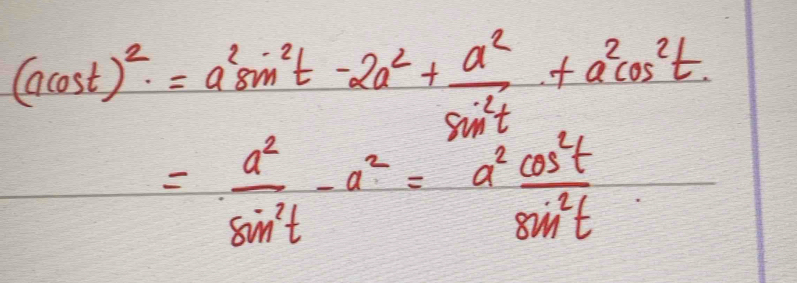 (acost)². = a²sin²t - 2a² + a²/sin²t . + a²cos²t.
= a²/sin²t - a² = a² cos²t/sin²t .